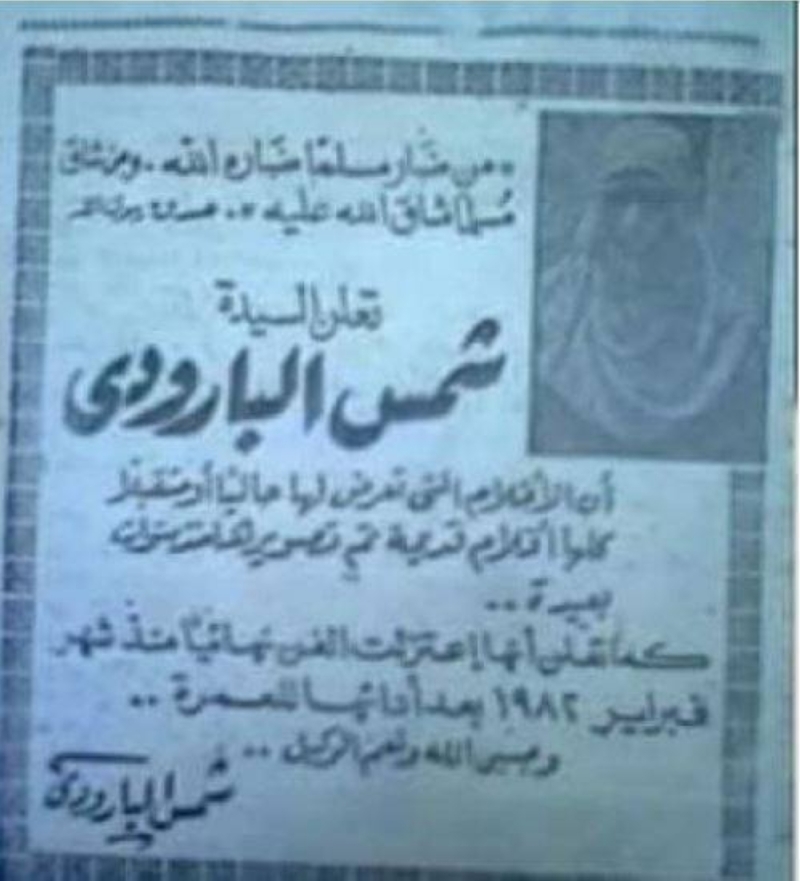 « من ضار مسلمًا ضاره الله . ومن شاق
مسلمًا شاق الله عليه » . صدق رسول الله
تعلن السيدة
شمس البارودى
أن الأفلام التى تعرض لها حاليًا أو مستقبلًا
كلها أفلام قديمة تم تصويرها منذ سنوات
بعيدة ..
كما تعلن أنها إعتزلت الفن نهائيًا منذ شهر
فبراير ١٩٨٢ بعد أدائها للعمرة ..
وحسبى الله ونعم الوكيل ..
شمس البارودى